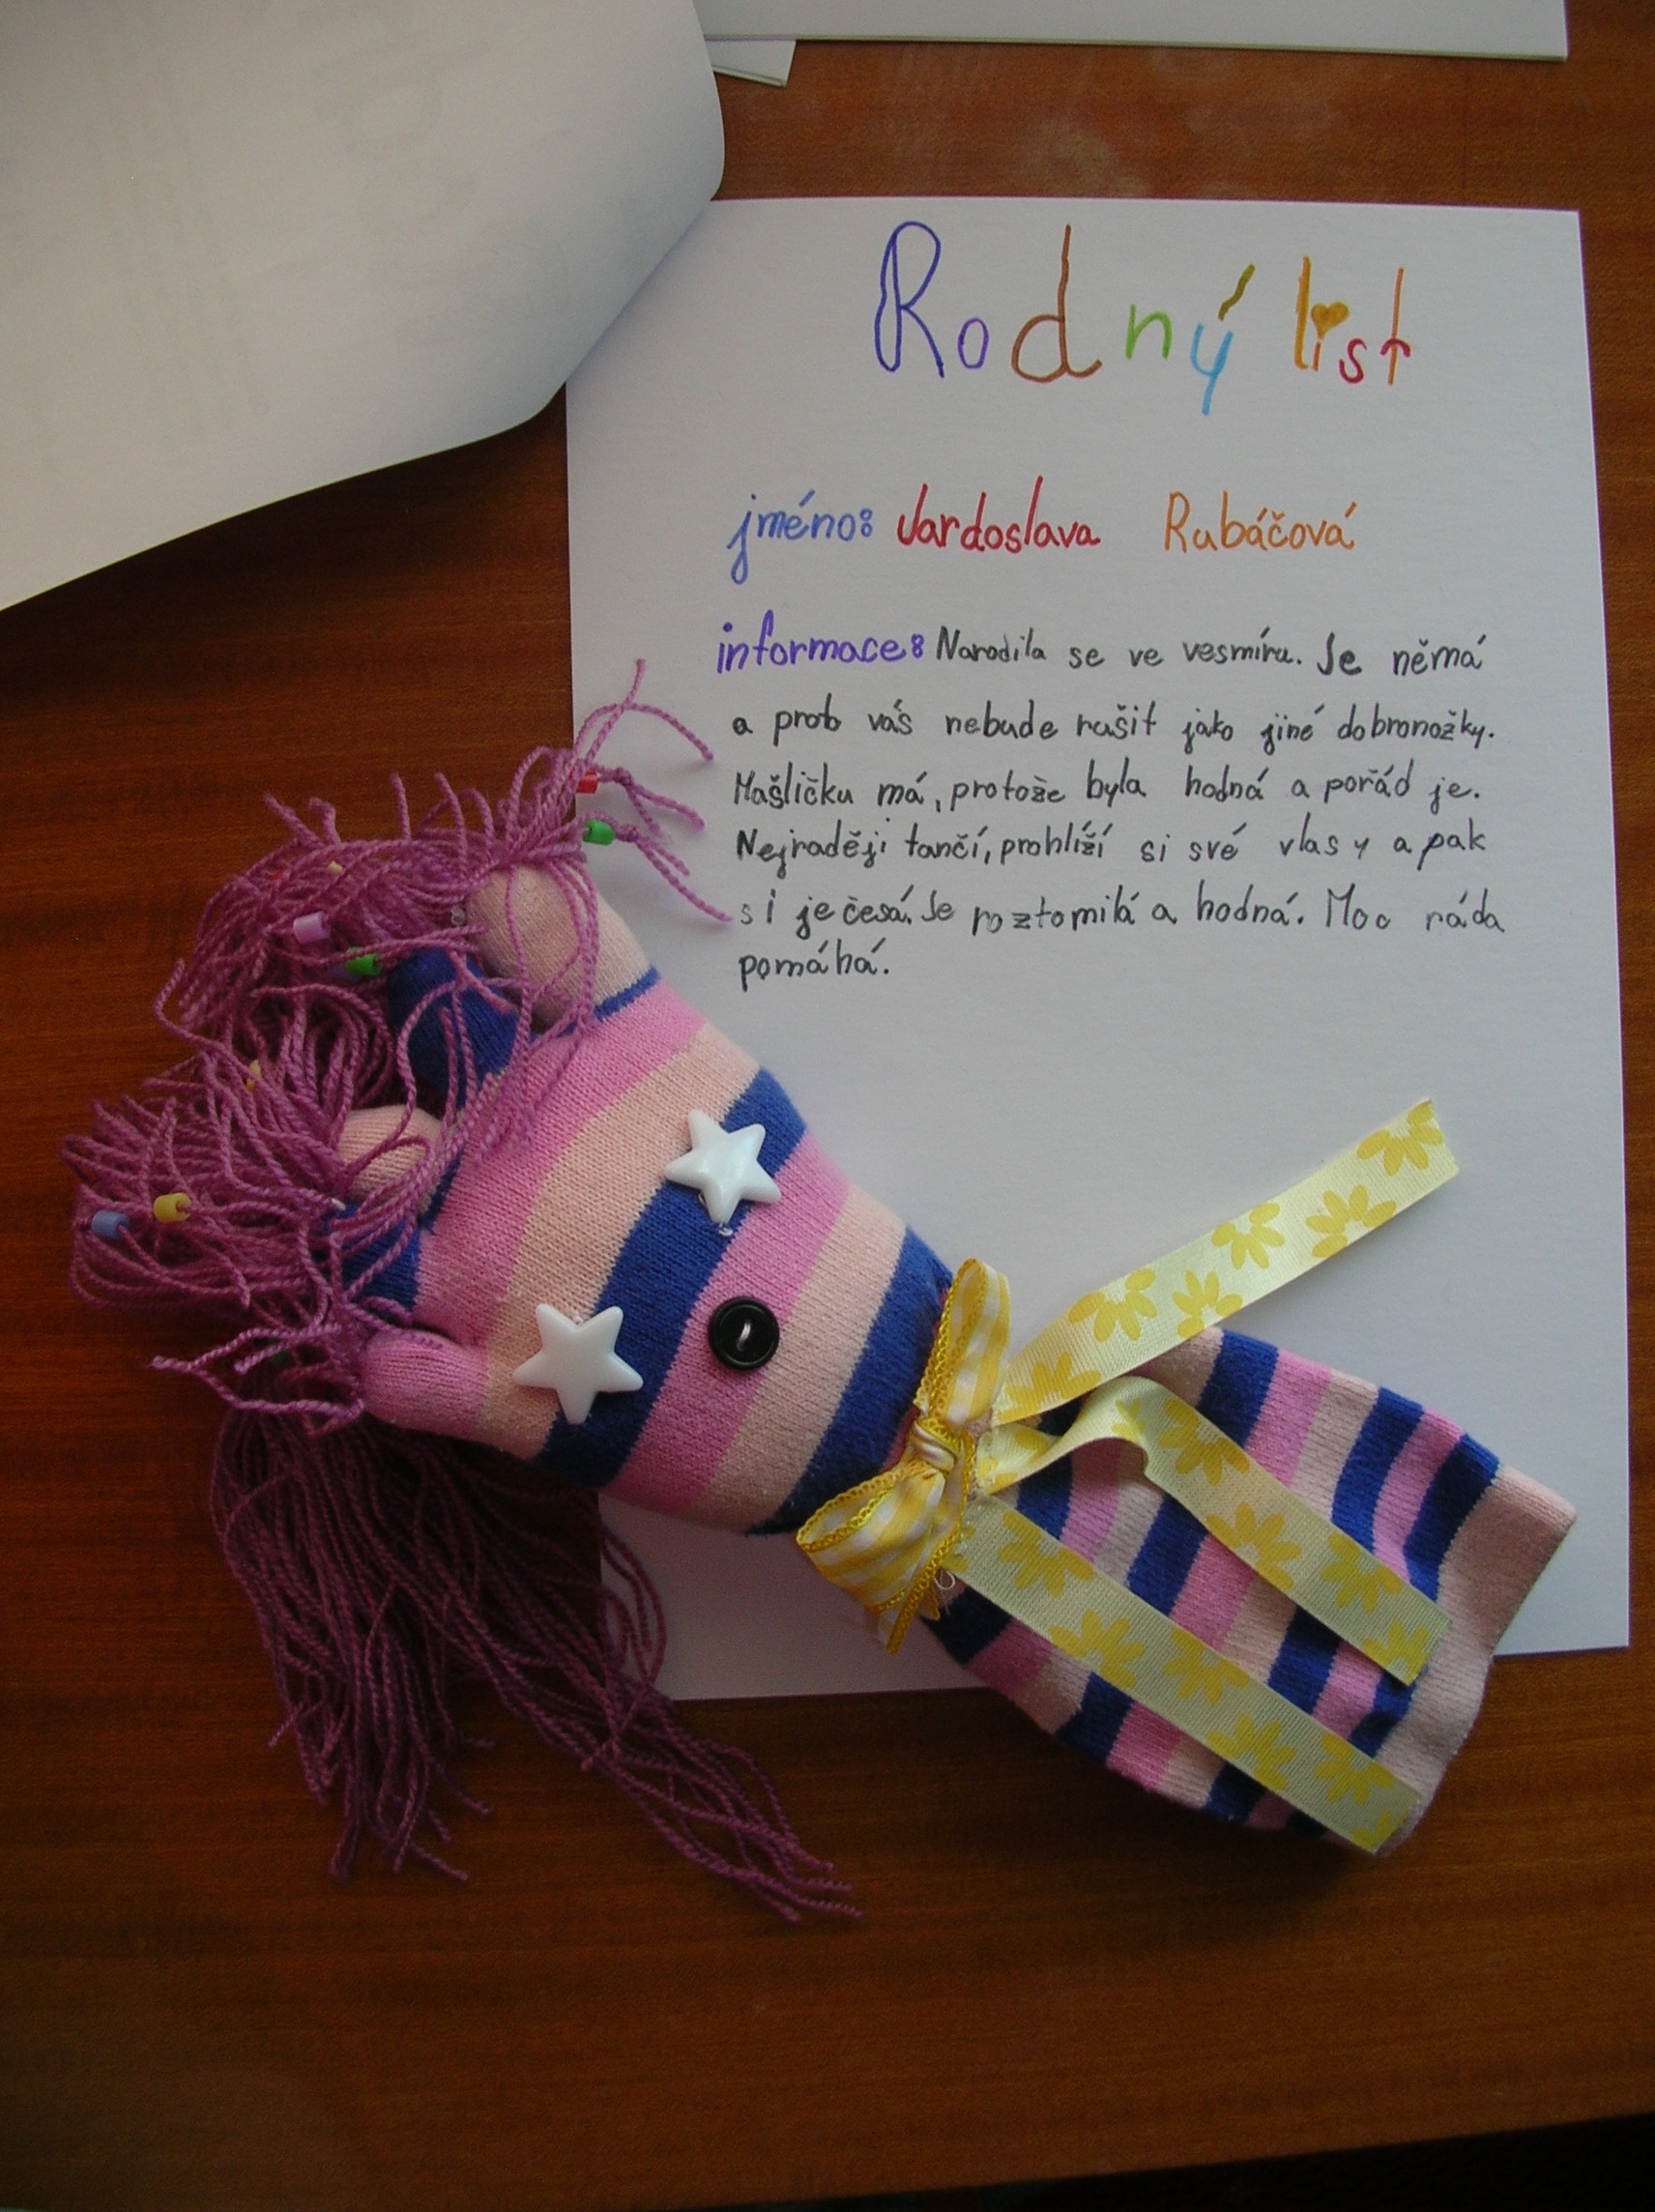 Rodný list
jméno: Jardoslava Rubáčová
informace: Narodila se ve vesmíru. Je němá
a proto vás nebude rušit jako jiné dobronožky.
Mašličku má, protože byla hodná a pořád je.
Nejraději tančí, prohlíží si své vlasy a pak
si je česá. Je roztomilá a hodná. Moc ráda
pomáhá.